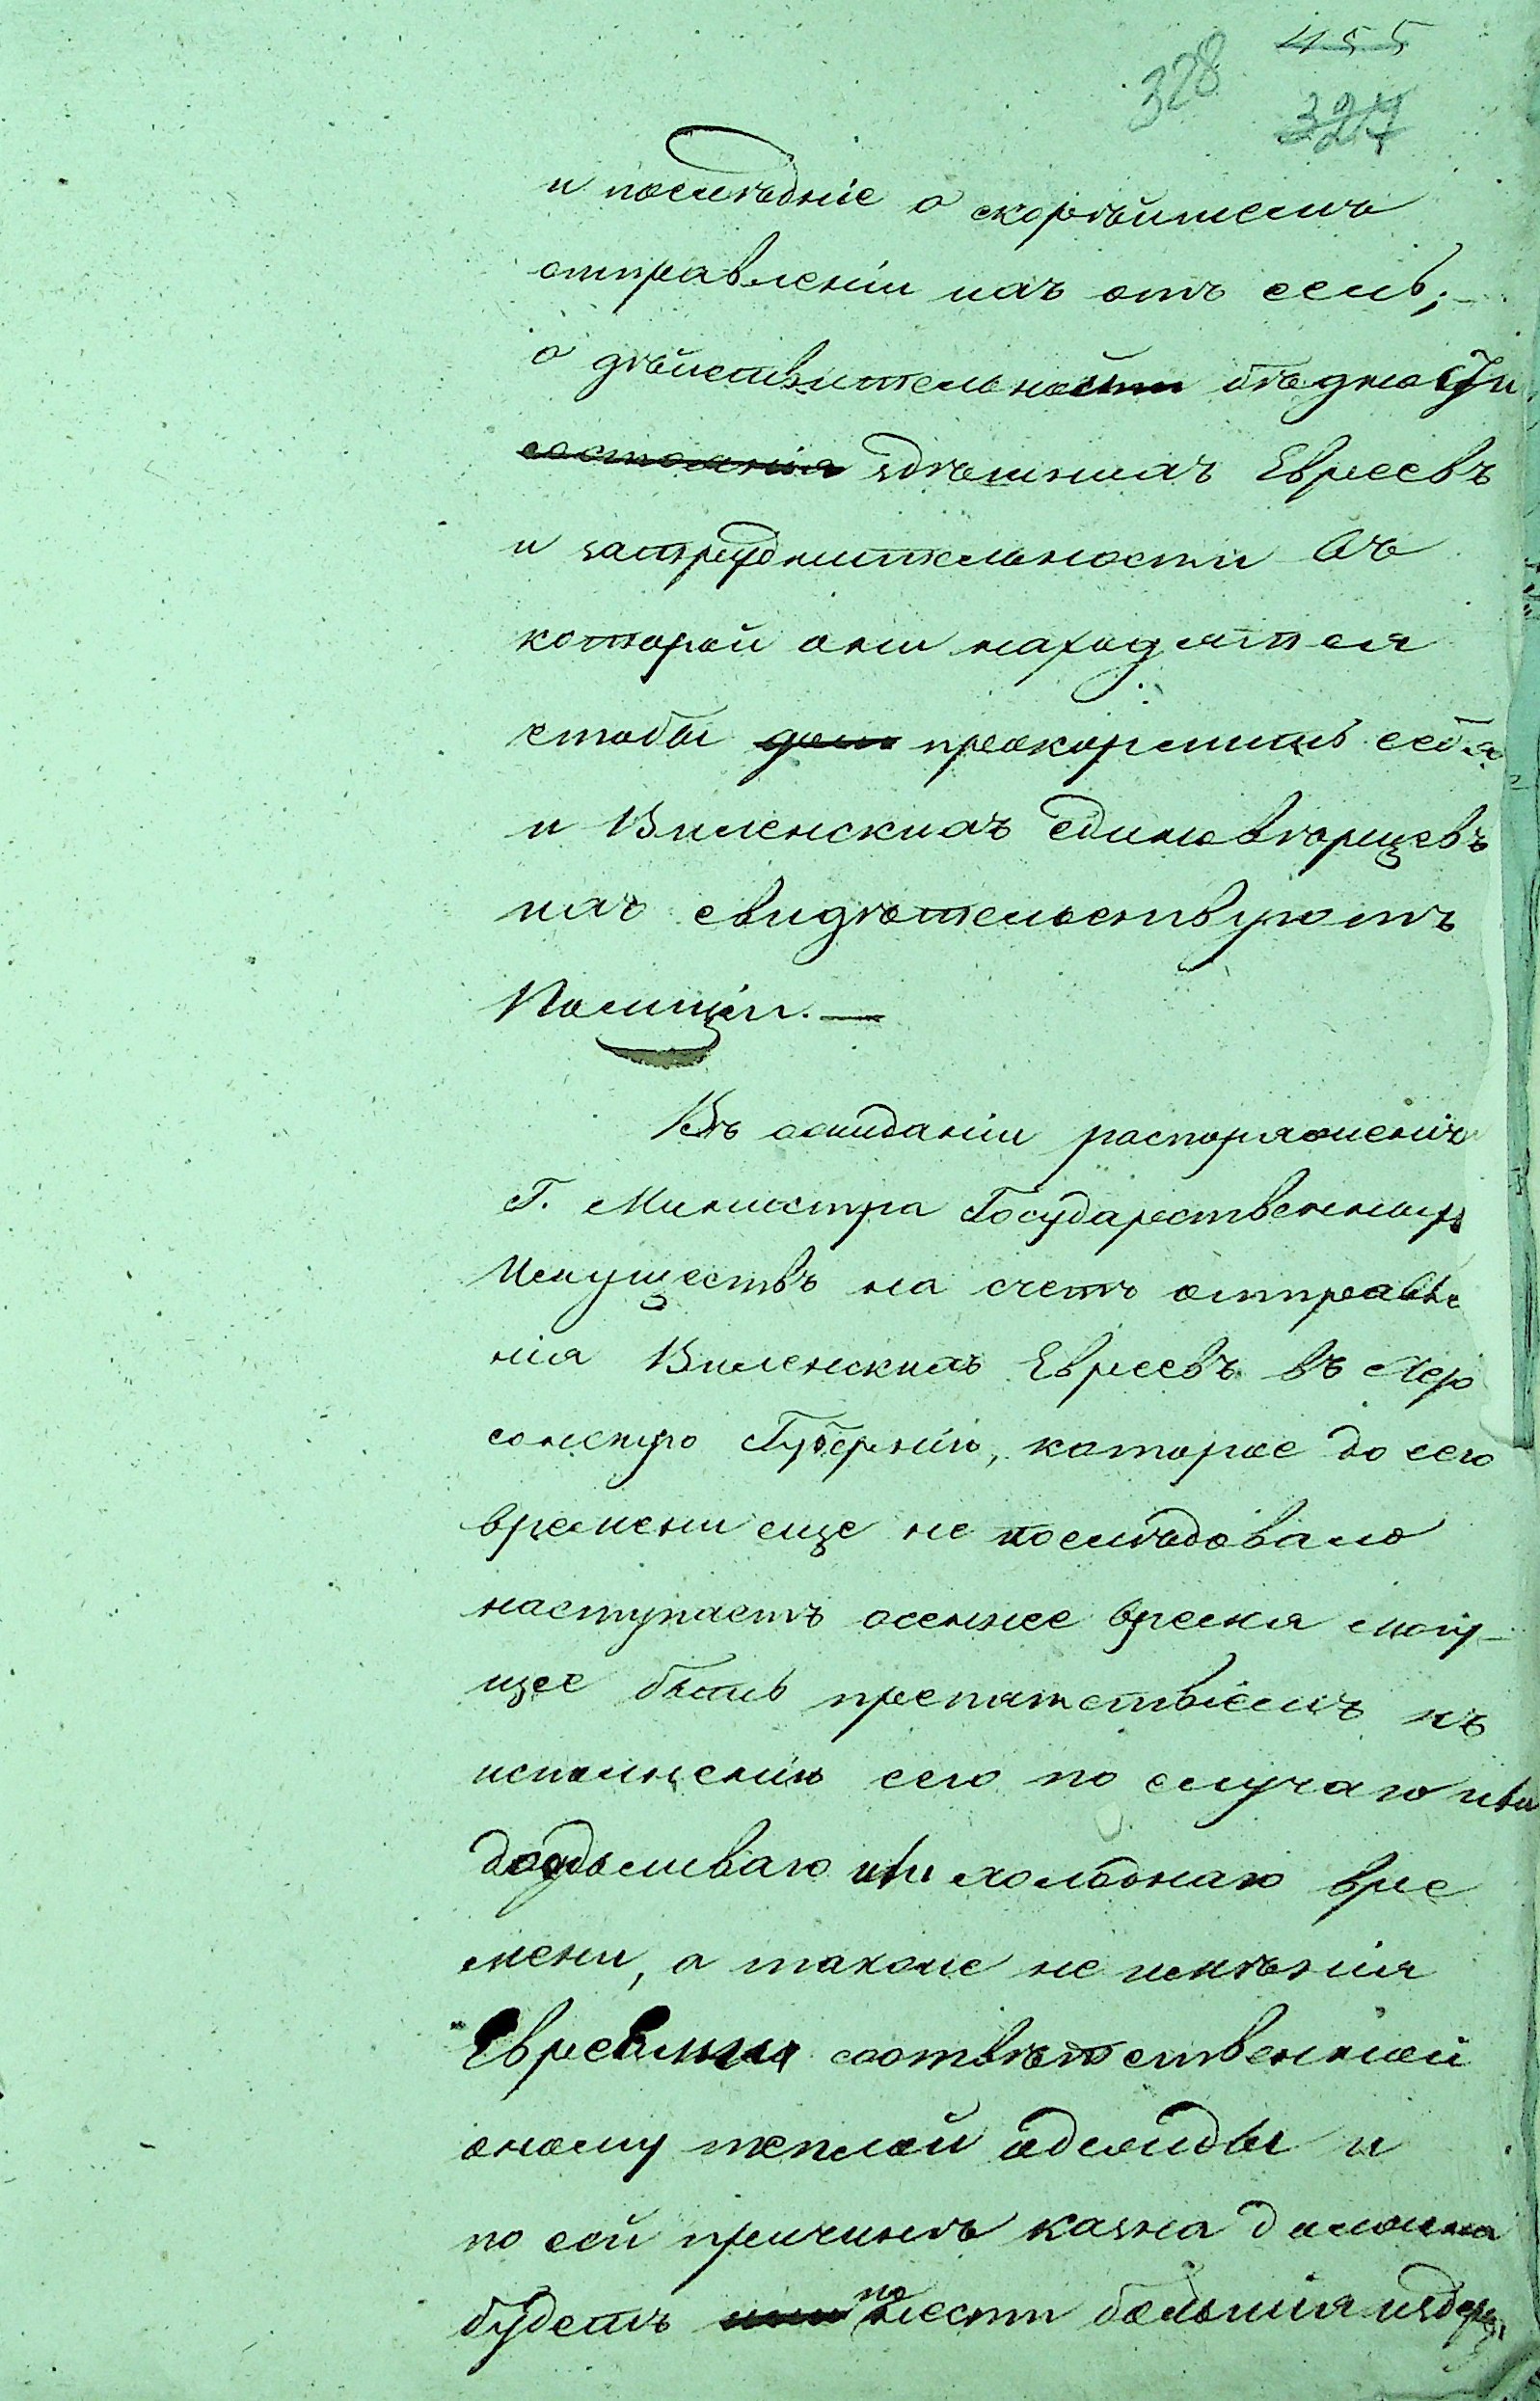 455
328
327
и послѣдніе о скорѣйшемъ
отправленіи ихъ отъ селѣ;
о дѣйствительности бѣдности
состоянія здѣшнихъ Евреевъ
и затруднительности въ
которой они находятся
чтобы прокормить себя
и Виленскихъ единовѣрцевъ
ихъ свидѣтельствуютъ
Полиціи. —
Въ ожиданіи распоряженія
Г. Министра Государственныхъ
Имуществъ на счетъ отправле
нія Виленскихъ Евреевъ въ Хер
сонскую Губернію, которое до сего
времени еще не послѣдовало
наступаетъ осеннее время могу-
щее быть препятствіемъ къ
исполненію сего по случаю или
дождливаго или холоднаго вре
мени, а также не имѣнія
Евреями соотвѣтственной
оному теплой одежды и
по сей причинѣ казна должна
будетъ понести большія издерж